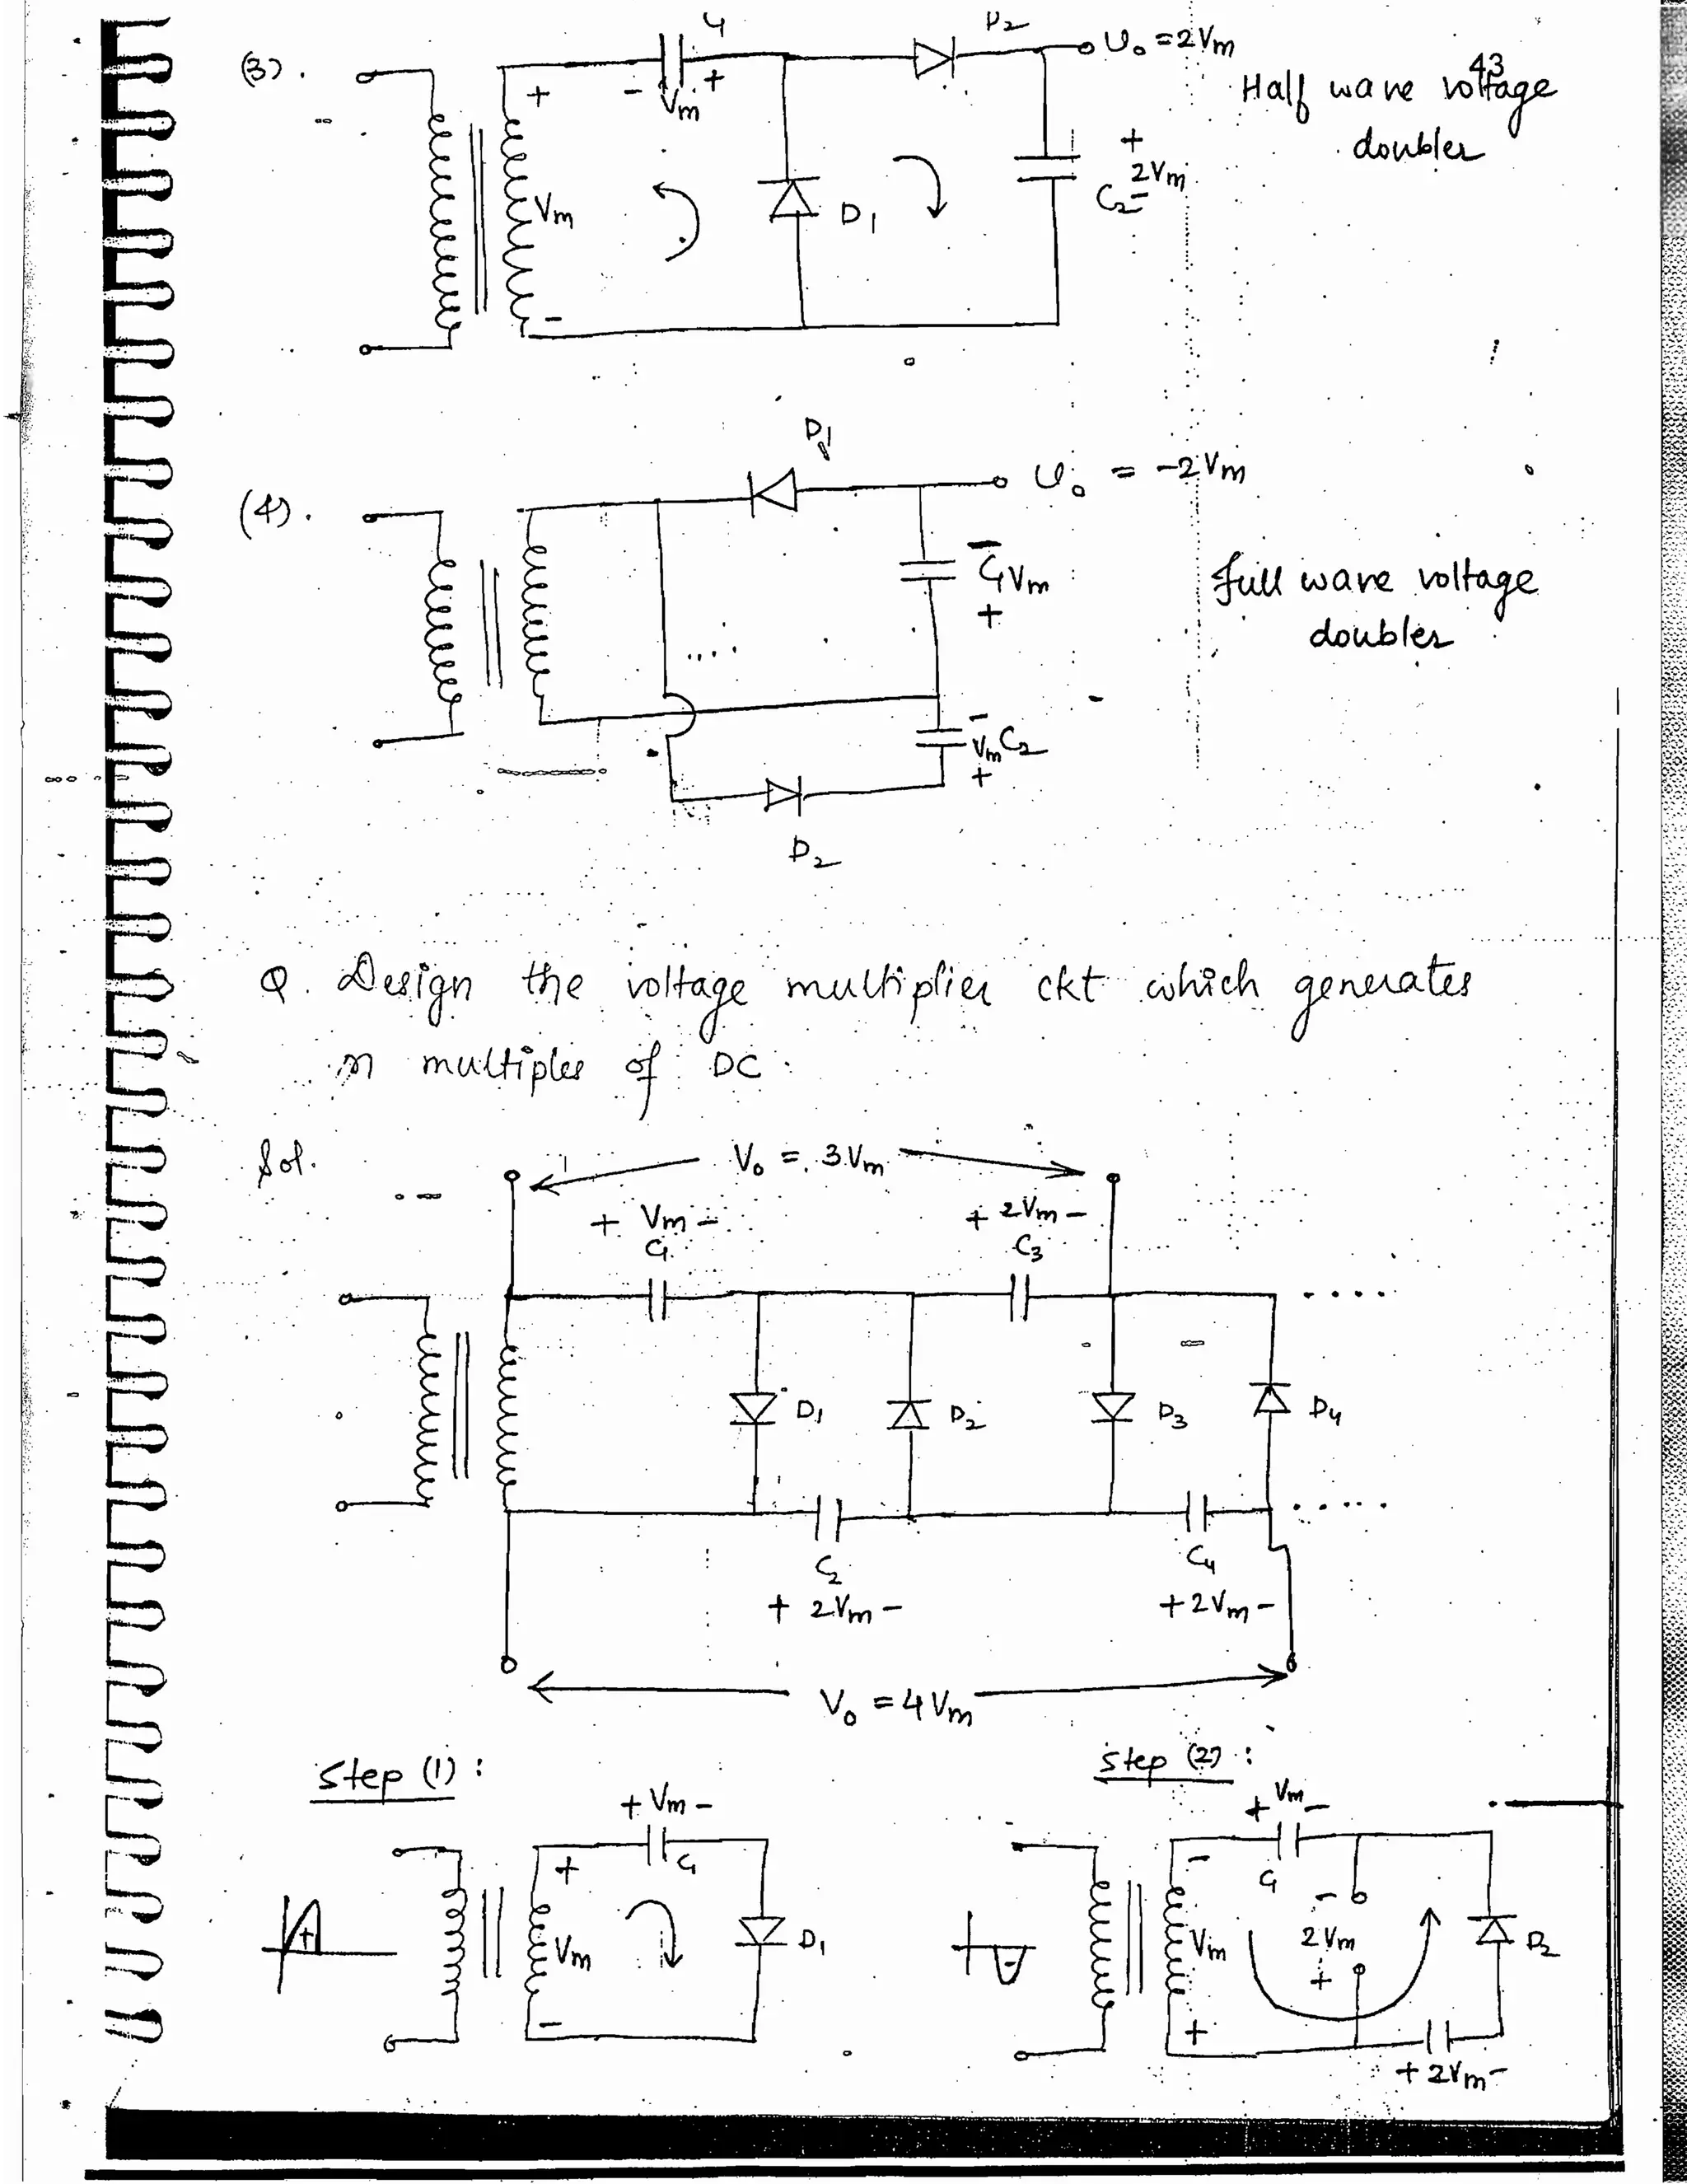 43
(3).
C1
D2
Vo = 2Vm
Half wave voltage
doubler
+
- Vm +
+
2Vm
C2 -
Vm
D1
-
D1
(4).
Vo = -2Vm
-
C1 Vm
+
Full wave voltage
doubler
-
Vm C2
+
D2
Q. Design the voltage multiplier ckt which generates
n multiples of DC.
Sol.
Vo = 3Vm
+ Vm -
C1
+ 2Vm -
C3
. . . . .
D1
D2
D3
D4
. . . . .
C2
+ 2Vm -
C4
+ 2Vm -
Vo = 4Vm
Step (1) :
+ Vm -
C1
+
Vm
D1
-
+
Step (2) :
+ Vm -
C1
-
Vm
+
-
2Vm
+
D2
-
+ 2Vm -